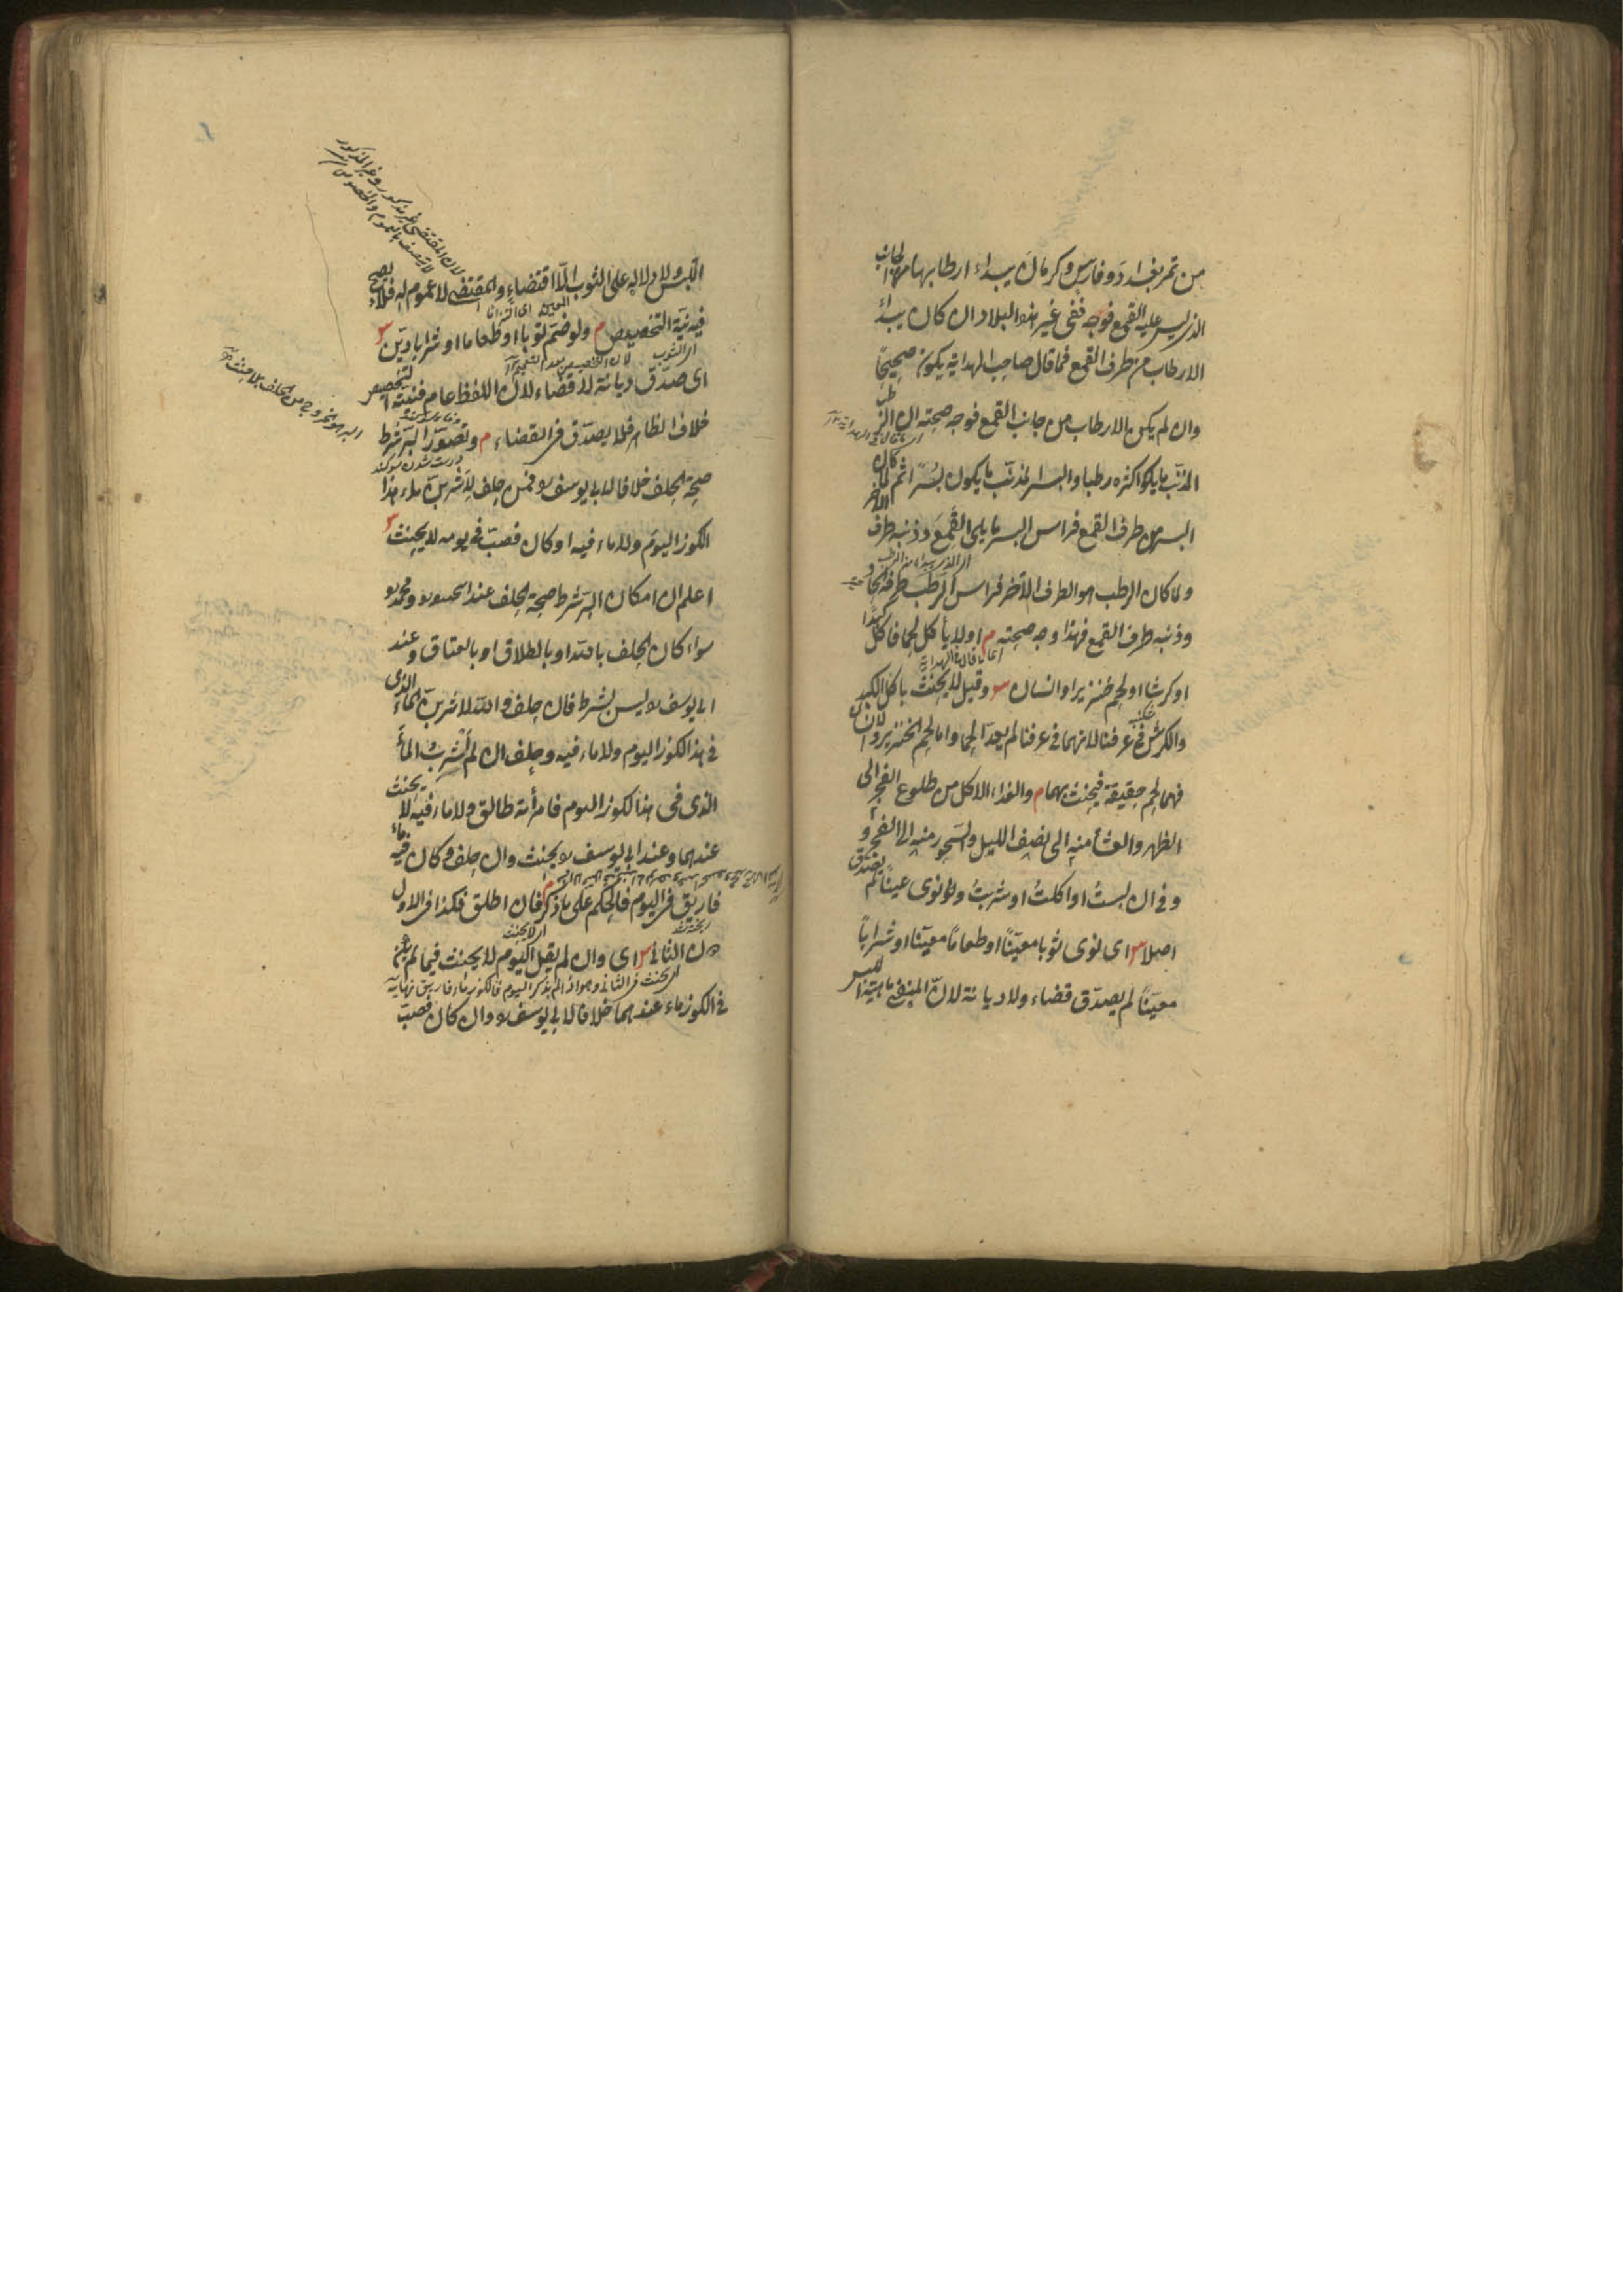 من تمر بغداد وفارس وكرمان يبداء ارطابها من الجانب
الذى ليس عليه القمع فوجه ففى غير هذه البلاد ان كان يبدأ
الارطاب من طرف القمع فما قال صاحب الهداية يكون صحيحًا
وان لم يكن الارطاب من جانب القمع فوجه صحته ان الرطب
المذنب ما يكون اكثره رطبا والبسر المذنب ما يكون بسرًا ثم لما كان
البسر من طرف القمع فراس البسر ما يلى القمع وذنبه طرف الآخر
ولما كان الرطب هو الطرف الآخر فراس الرطب طرفه الحاد
وذنبه طرف القمع فهذا وجه صحته م او لا يأكل لحما فاكل كبدًا
او كرشا او لحم خنزير او انسان س وقيل لا يحنث باكل الكبد
والكرش فى عرفنا لانهما فى عرفنا لم يعد لحما واما لحم الخنزير والانسان
فهما لحم حقيقة فيحنث بهما م والغداء الاكل من طلوع الفجر الى
الظهر والعشأ منه الى نصف الليل والسحور منه الى الفجر و
فى ان لبست او اكلت او شربت ولو نوى عينًا لم يصدق
اصلا س اى نوى ثوبا معينًا او طعامًا معينا او شرابًا
معينًا لم يصدق قضاء ولا ديانة لان المنفى ماهية اللبس
اللبس ولا دلالة على الثوب الّا اقتضاء والمقتضى لا عموم له فلا يصح
فيه نية التخصيص م ولو ضم ثوبا او طعاما او شرابا ديّن س
اى صدّق ديانة لا قضاء لان اللفظ عام فنيته التخصيص
خلاف الظاهر فلا يصدق فى القضاء م وتصور البر شرط
صحة الحلف خلافا لابى يوسف فمن حلف لاشربن ماء هذا
الكوز اليوم ولا ماء فيه او كان فصبّ فى يومه لا يحنث س
اعلم ان امكان البر شرط صحة الحلف عند ابى حنيفة ومحمد
سواء كان الحلف بالله او بالطلاق او بالعتاق وعند
ابى يوسف ليس بشرط فان حلف والله لاشربن الماء الذى
فى هذا الكوز اليوم ولا ماء فيه وحلف ان لم اشرب الماء
الذى فى هذا الكوز اليوم فامرأته طالق ولا ماء فيه لا يحنث
عندهما وعند ابى يوسف يحنث وان حلف وكان فيه ماء
فاريق فى اليوم فالحكم على ما ذكر م فان اطلق فكذا فى الاول
دون الثانى س اى وان لم يقل اليوم لا يحنث فيما لم يكن
فى الكوز ماء عندهما خلافا لابى يوسف وان كان فصبّ